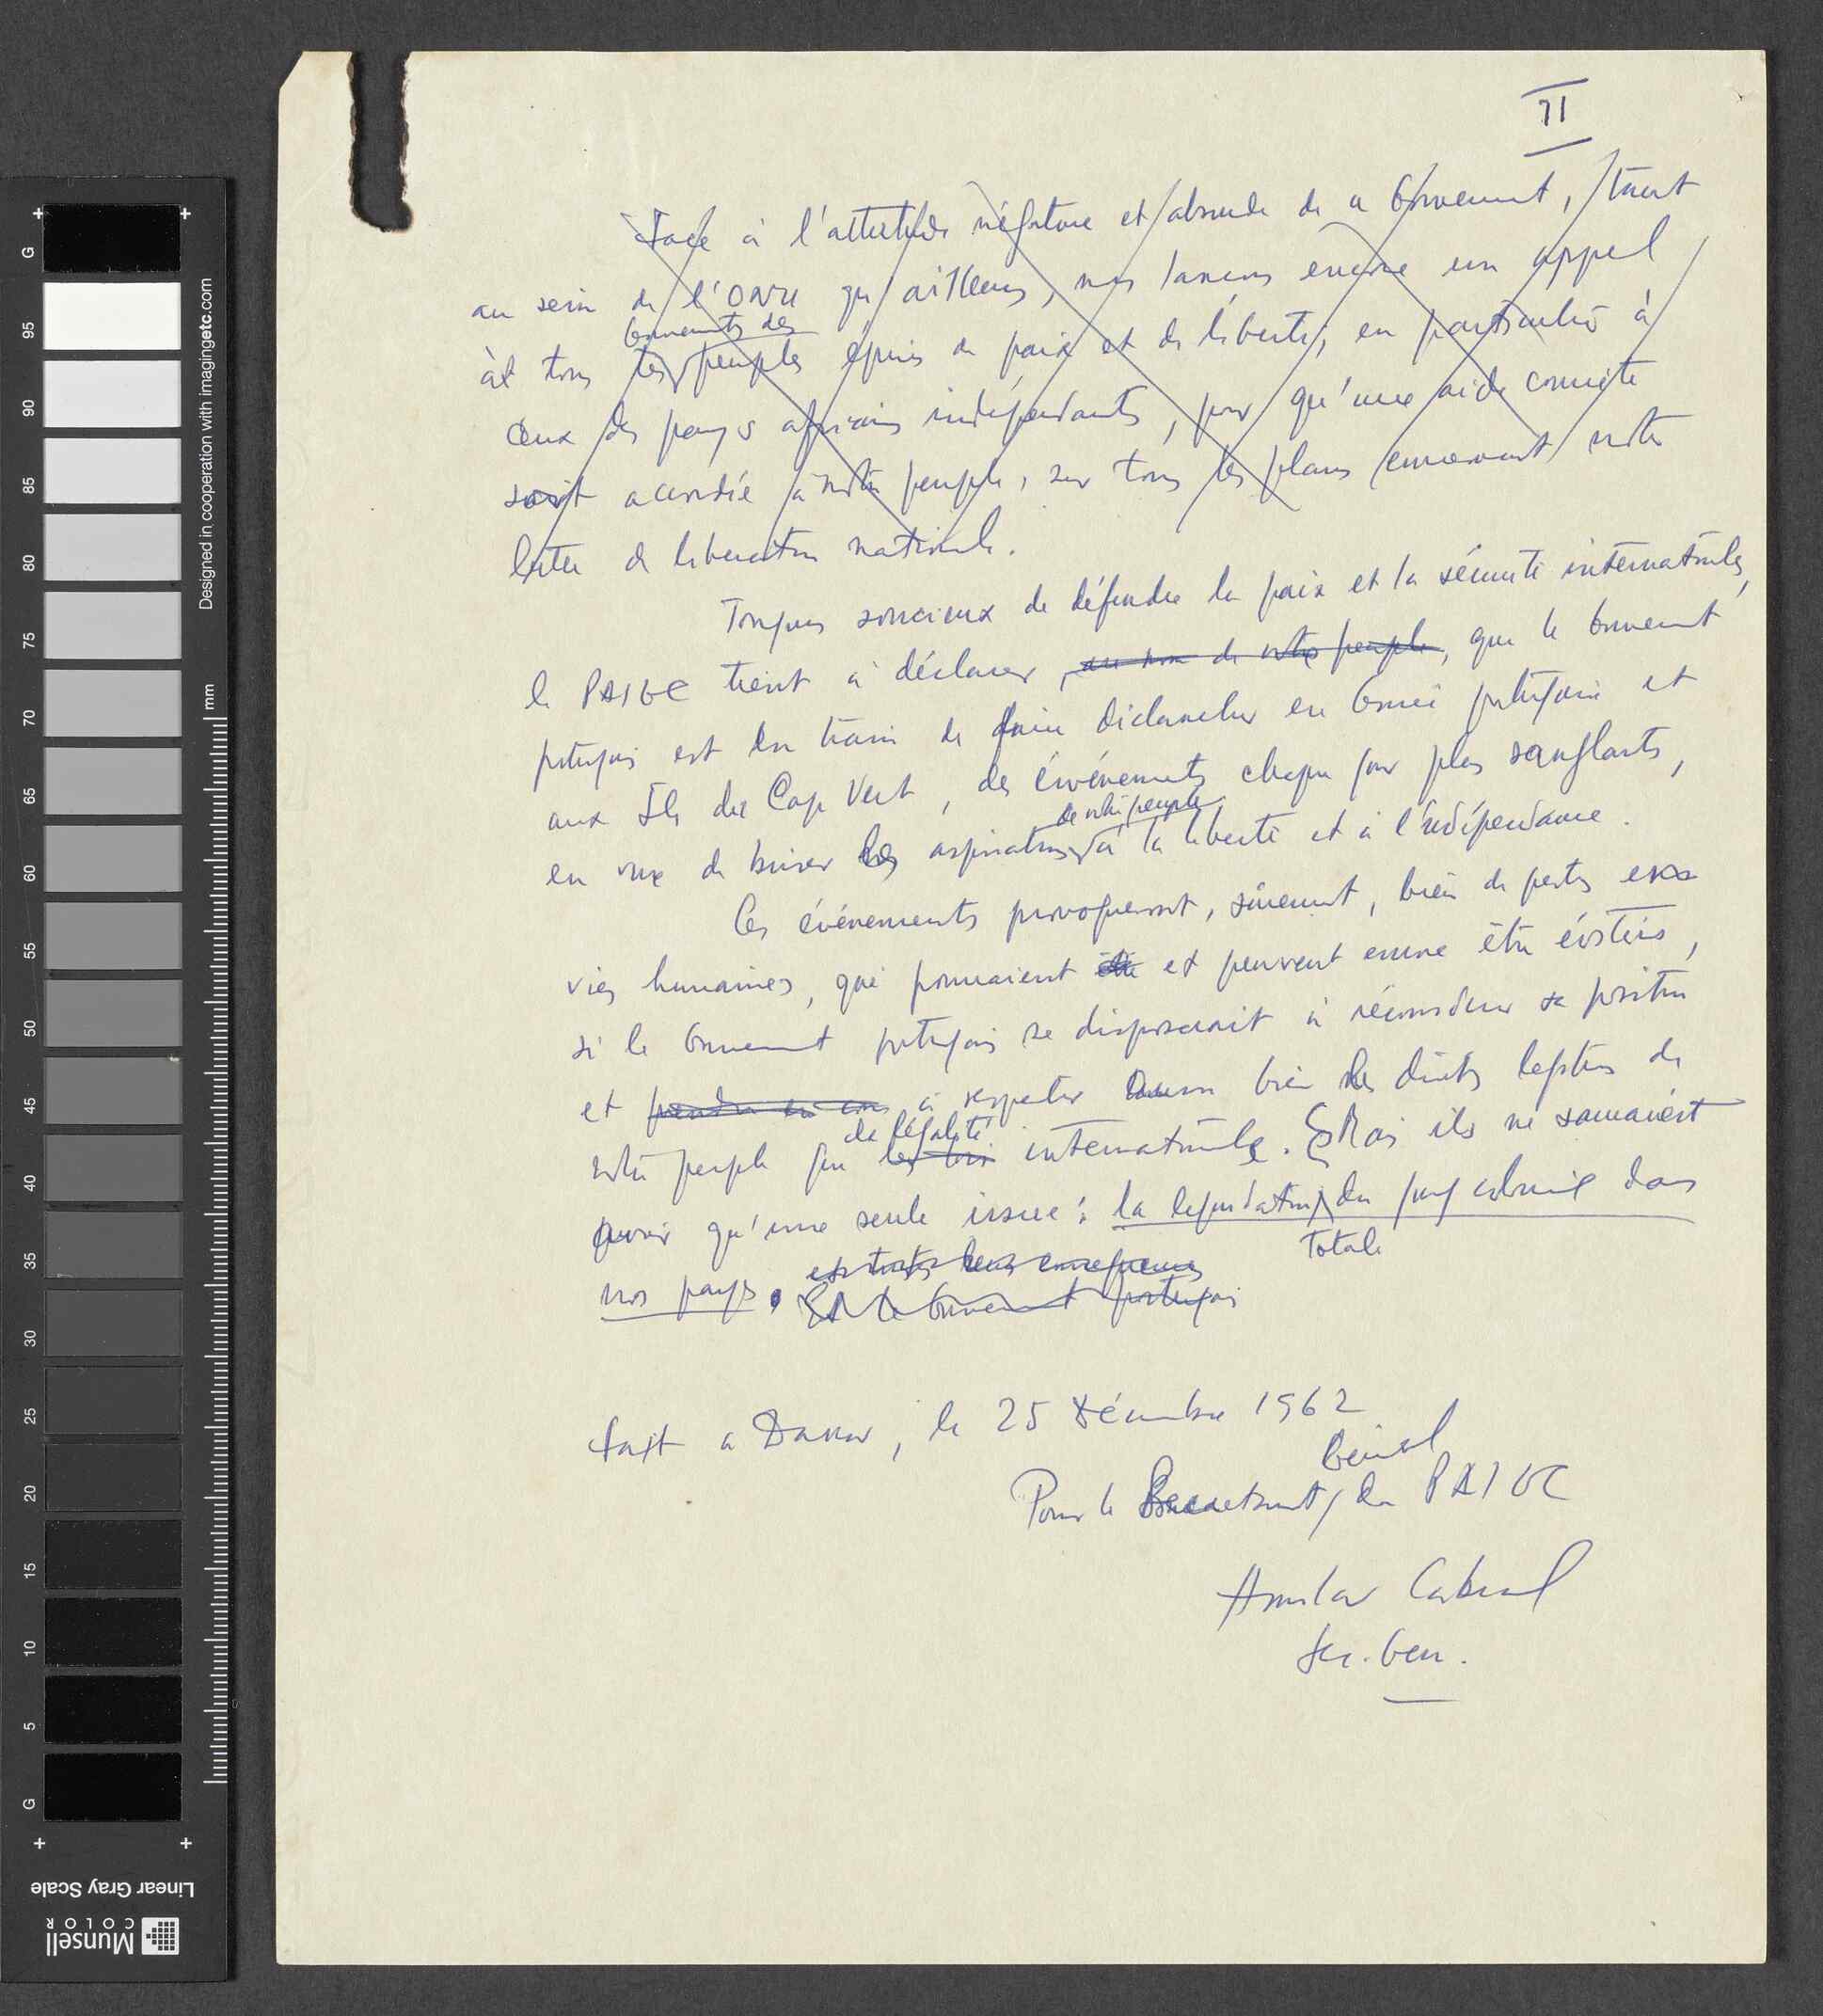 II
Face à l'attitude négative et absurde de ce Gouvernement, tant
au sein de l'ONU qu'ailleurs, nous lançons encore un appel
Gouvernements des
à tous les peuples épris de paix et de liberté, en particulier à
ceux des pays africains indépendants, pour qu'une aide concrète
soit accordée à notre peuple, sur tous les plans concernant notre
lutte de libération nationale.
Toujours soucieux de défendre la paix et la sécurité internationales,
le PAIGC tient à déclarer, au nom de notre peuple, que le Gouvernement
portugais est en train de faire déclancher en Guinée portugaise et
aux Iles du Cap Vert, des événements chaque jour plus sanglants,
de notre peuple
en vue de briser les aspirations à la liberté et à l'indépendance.
Ces événements provoqueront, sûrement, bien de pertes en
vies humaines, qui pourraient être et peuvent encore être évitées,
si le Gouvernement portugais se disposerait à réconsidérer sa position
et prendre en à respecter aussi bien les droits légitimes de
la légalité
notre peuple que les lois internationale. Mais ils ne sauraient
avoir qu'une seule issue: la liquidation du joug colonial dans
totale
et toutes leurs conséquences
nos pays. Et le Gouvernement portugais
Fait a Dakar, le 25 Décembre 1962
Général
Pour le Secretariat du PAIGC
Amilcar Cabral
Sec. Gen.
G
95
90
85
80
75
70
65
60
55
50
45
40
35
30
25
20
15
10
5
G
mm
Designed in cooperation with imagingetc.com
Linear Gray Scale
Munsell
COLOR